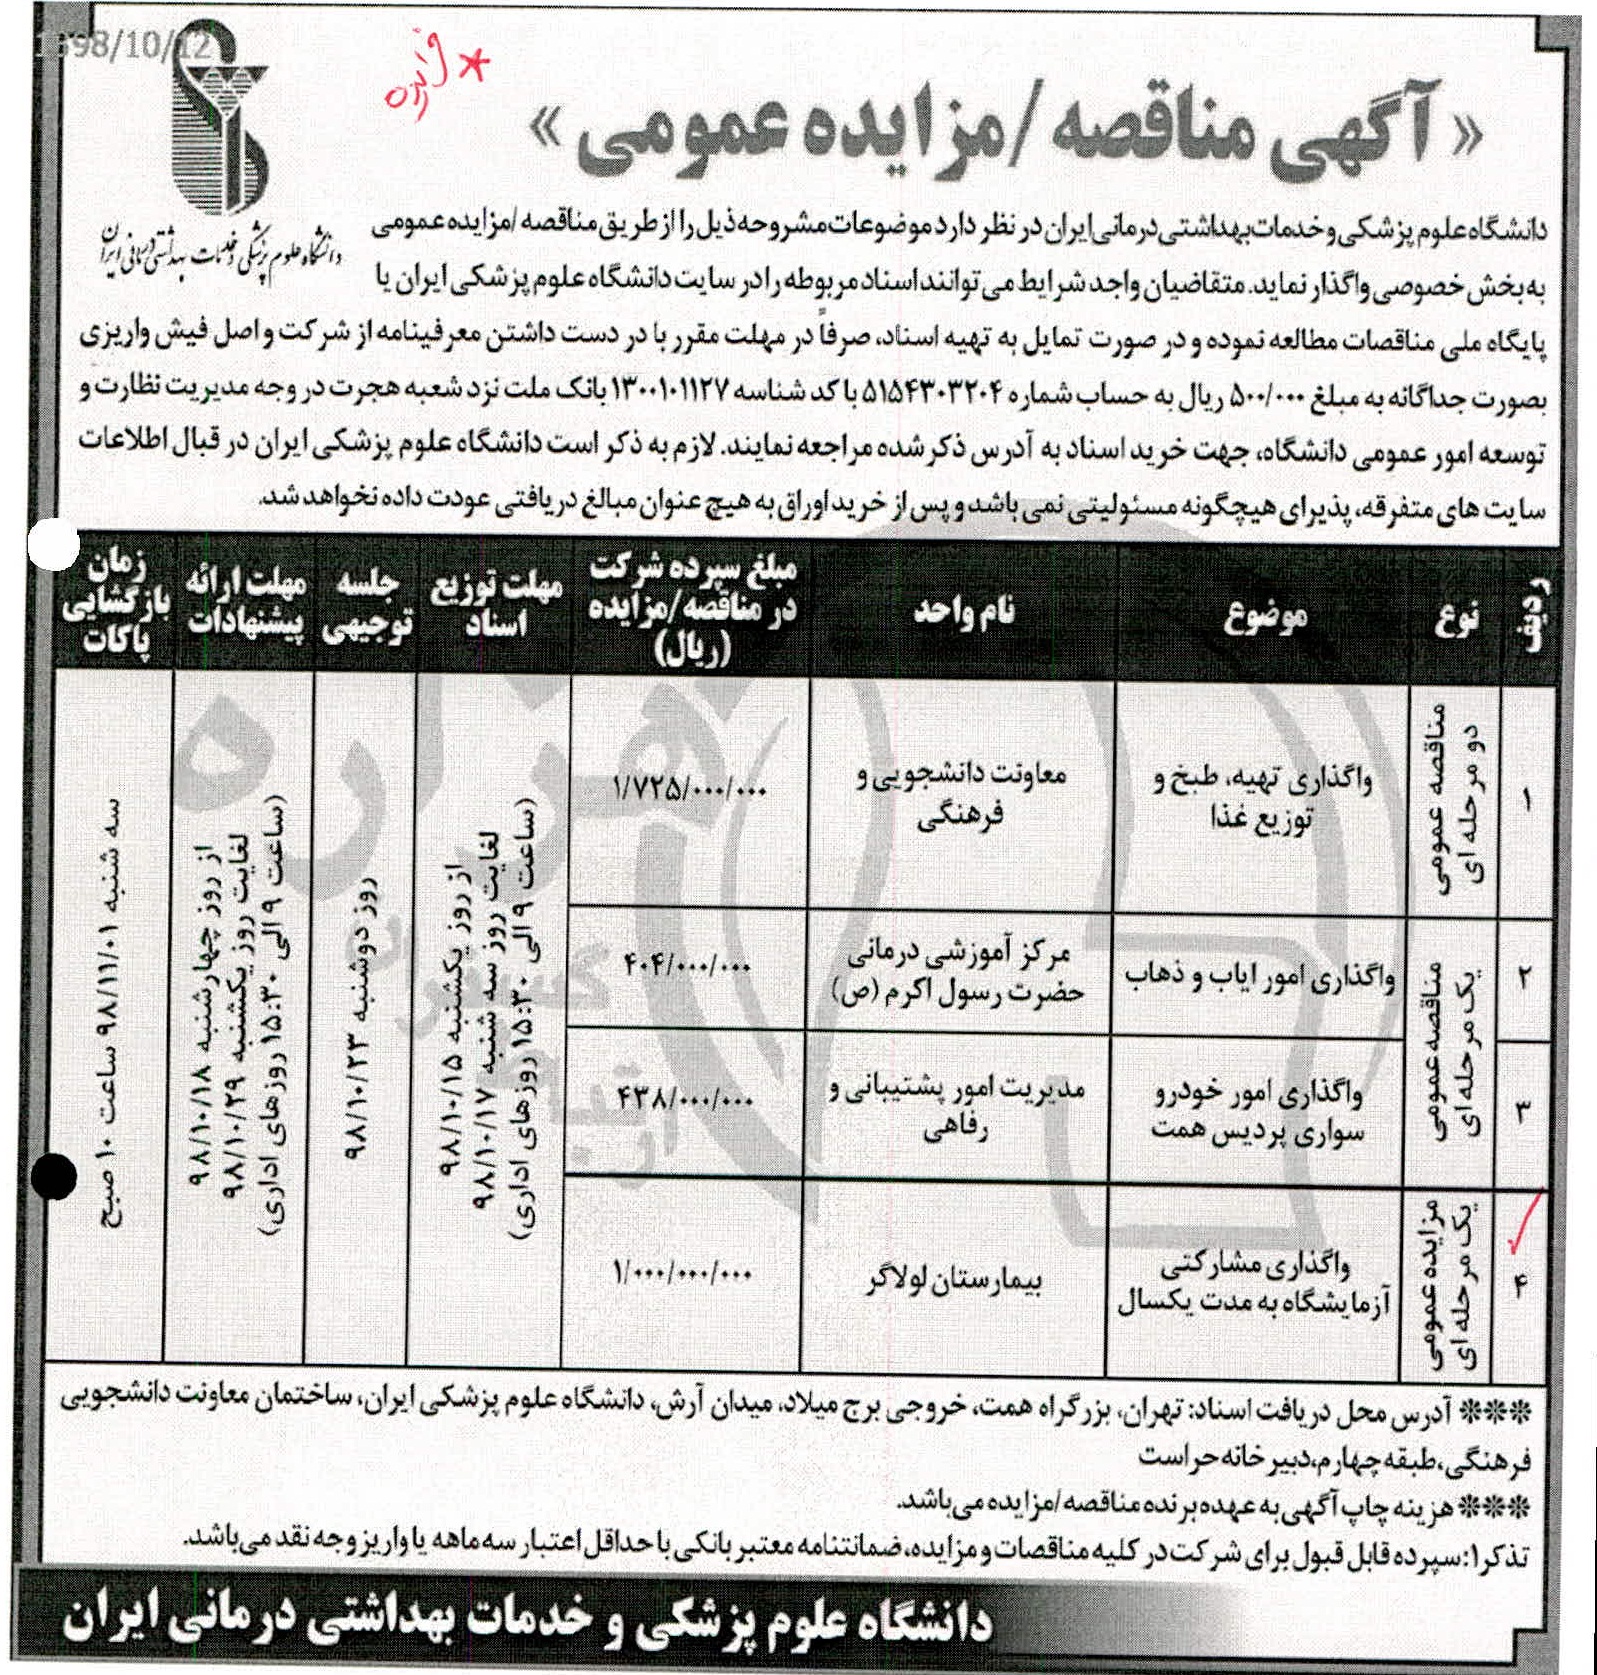 1398/10/12
دانشگاه علوم پزشکی و خدمات بهداشتی درمانی ایران
« آگهی مناقصه /مزایده عمومی »
دانشگاه علوم پزشکی و خدمات بهداشتی درمانی ایران در نظر دارد موضوعات مشروحه ذیل را از طریق مناقصه /مزایده عمومی
به بخش خصوصی واگذار نماید. متقاضیان واجد شرایط می توانند اسناد مربوطه را در سایت دانشگاه علوم پزشکی ایران یا
پایگاه ملی مناقصات مطالعه نموده و در صورت تمایل به تهیه اسناد، صرفاً در مهلت مقرر با در دست داشتن معرفینامه از شرکت و اصل فیش واریزی
بصورت جداگانه به مبلغ ۵۰۰/۰۰۰ ریال به حساب شماره ۵۱۵۴۳۰۳۲۰۴ با کد شناسه ۱۳۰۰۱۰۱۱۲۷ بانک ملت نزد شعبه هجرت در وجه مدیریت نظارت و
توسعه امور عمومی دانشگاه، جهت خرید اسناد به آدرس ذکر شده مراجعه نمایند. لازم به ذکر است دانشگاه علوم پزشکی ایران در قبال اطلاعات
سایت های متفرقه، پذیرای هیچگونه مسئولیتی نمی باشد و پس از خرید اوراق به هیچ عنوان مبالغ دریافتی عودت داده نخواهد شد.
ردیف
نوع
موضوع
نام واحد
مبلغ سپرده شرکت
در مناقصه/مزایده
(ریال)
مهلت توزیع
اسناد
جلسه
توجیهی
مهلت ارائه
پیشنهادات
زمان
بازگشایی
پاکات
۱
مناقصه عمومی
دو مرحله ای
واگذاری تهیه، طبخ و
توزیع غذا
معاونت دانشجویی و
فرهنگی
۱/۷۲۵/۰۰۰/۰۰۰
۲
مناقصه عمومی
یک مرحله ای
واگذاری امور ایاب و ذهاب
مرکز آموزشی درمانی
حضرت رسول اکرم (ص)
۴۰۴/۰۰۰/۰۰۰
۳
واگذاری امور خودرو
سواری پردیس همت
مدیریت امور پشتیبانی و
رفاهی
۴۳۸/۰۰۰/۰۰۰
۴
مزایده عمومی
یک مرحله ای
واگذاری مشارکتی
آزمایشگاه به مدت یکسال
بیمارستان لولاگر
۱/۰۰۰/۰۰۰/۰۰۰
از روز یکشنبه ۹۸/۱۰/۱۵
لغایت روز سه شنبه ۹۸/۱۰/۱۷
(ساعت ۹ الی ۱۵:۳۰ روزهای اداری)
روز دوشنبه ۹۸/۱۰/۲۳
از روز چهارشنبه ۹۸/۱۰/۱۸
لغایت روز یکشنبه ۹۸/۱۰/۲۹
(ساعت ۹ الی ۱۵:۳۰ روزهای اداری)
سه شنبه ۹۸/۱۱/۰۱ ساعت ۱۰ صبح
*** آدرس محل دریافت اسناد: تهران، بزرگراه همت، خروجی برج میلاد، میدان آرش، دانشگاه علوم پزشکی ایران، ساختمان معاونت دانشجویی
فرهنگی، طبقه چهارم، دبیر خانه حراست
*** هزینه چاپ آگهی به عهده برنده مناقصه/مزایده می باشد.
تذکر۱: سپرده قابل قبول برای شرکت در کلیه مناقصات و مزایده، ضمانتنامه معتبر بانکی با حداقل اعتبار سه ماهه یا واریز وجه نقد می باشد.
دانشگاه علوم پزشکی و خدمات بهداشتی درمانی ایران